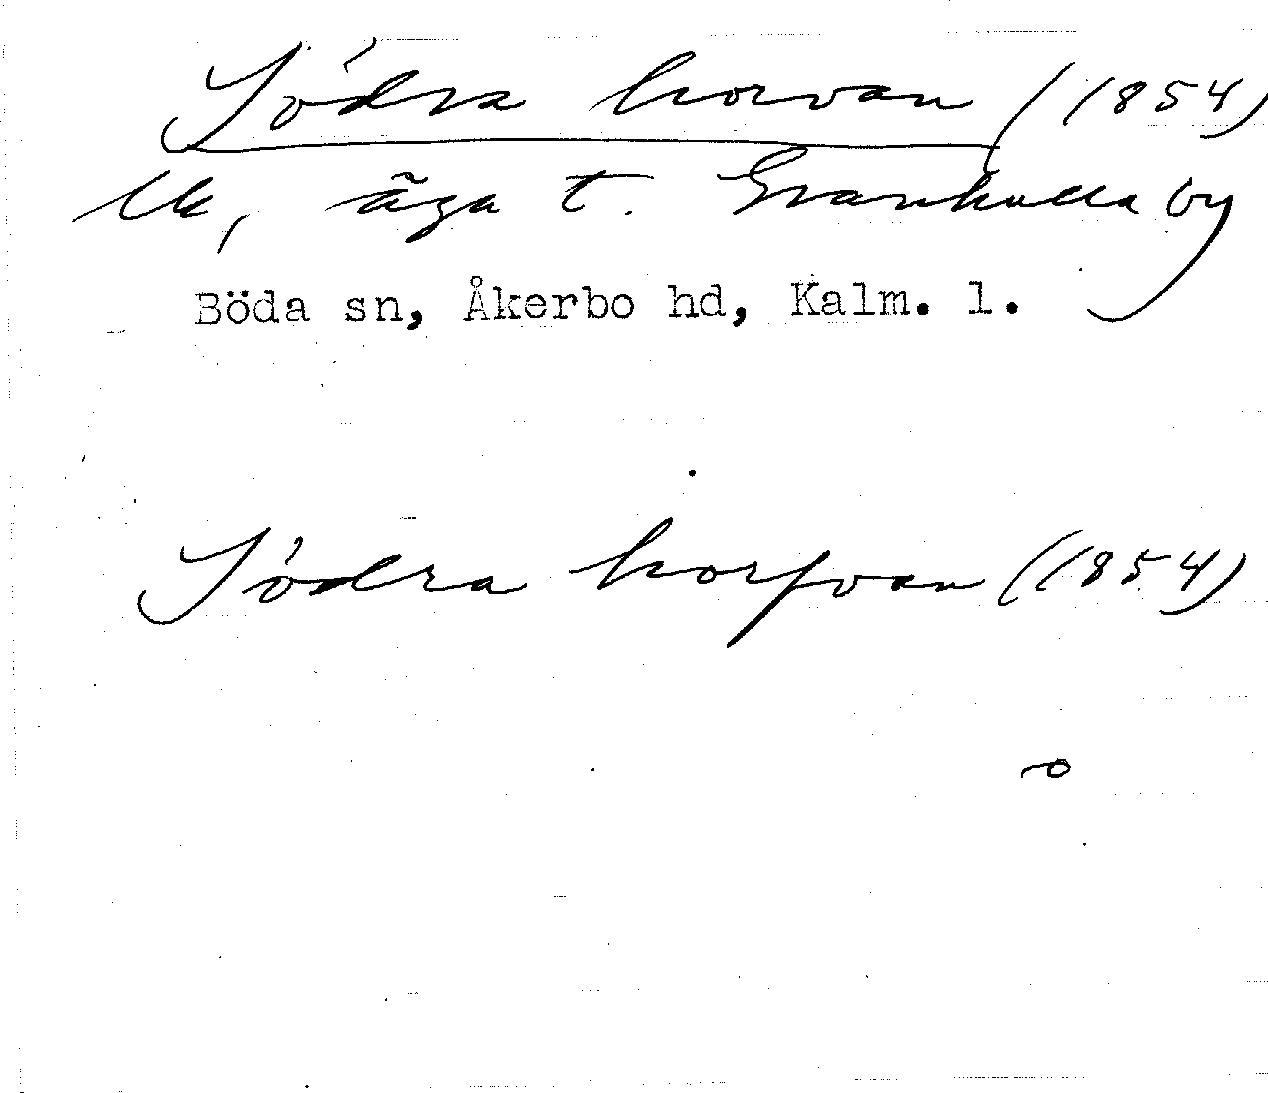 Södra horvan (1854)
Ua, äga t. Grankulla by
Böda sn, Åkerbo hd, Kalm. l.
Södra horfvan (1854)